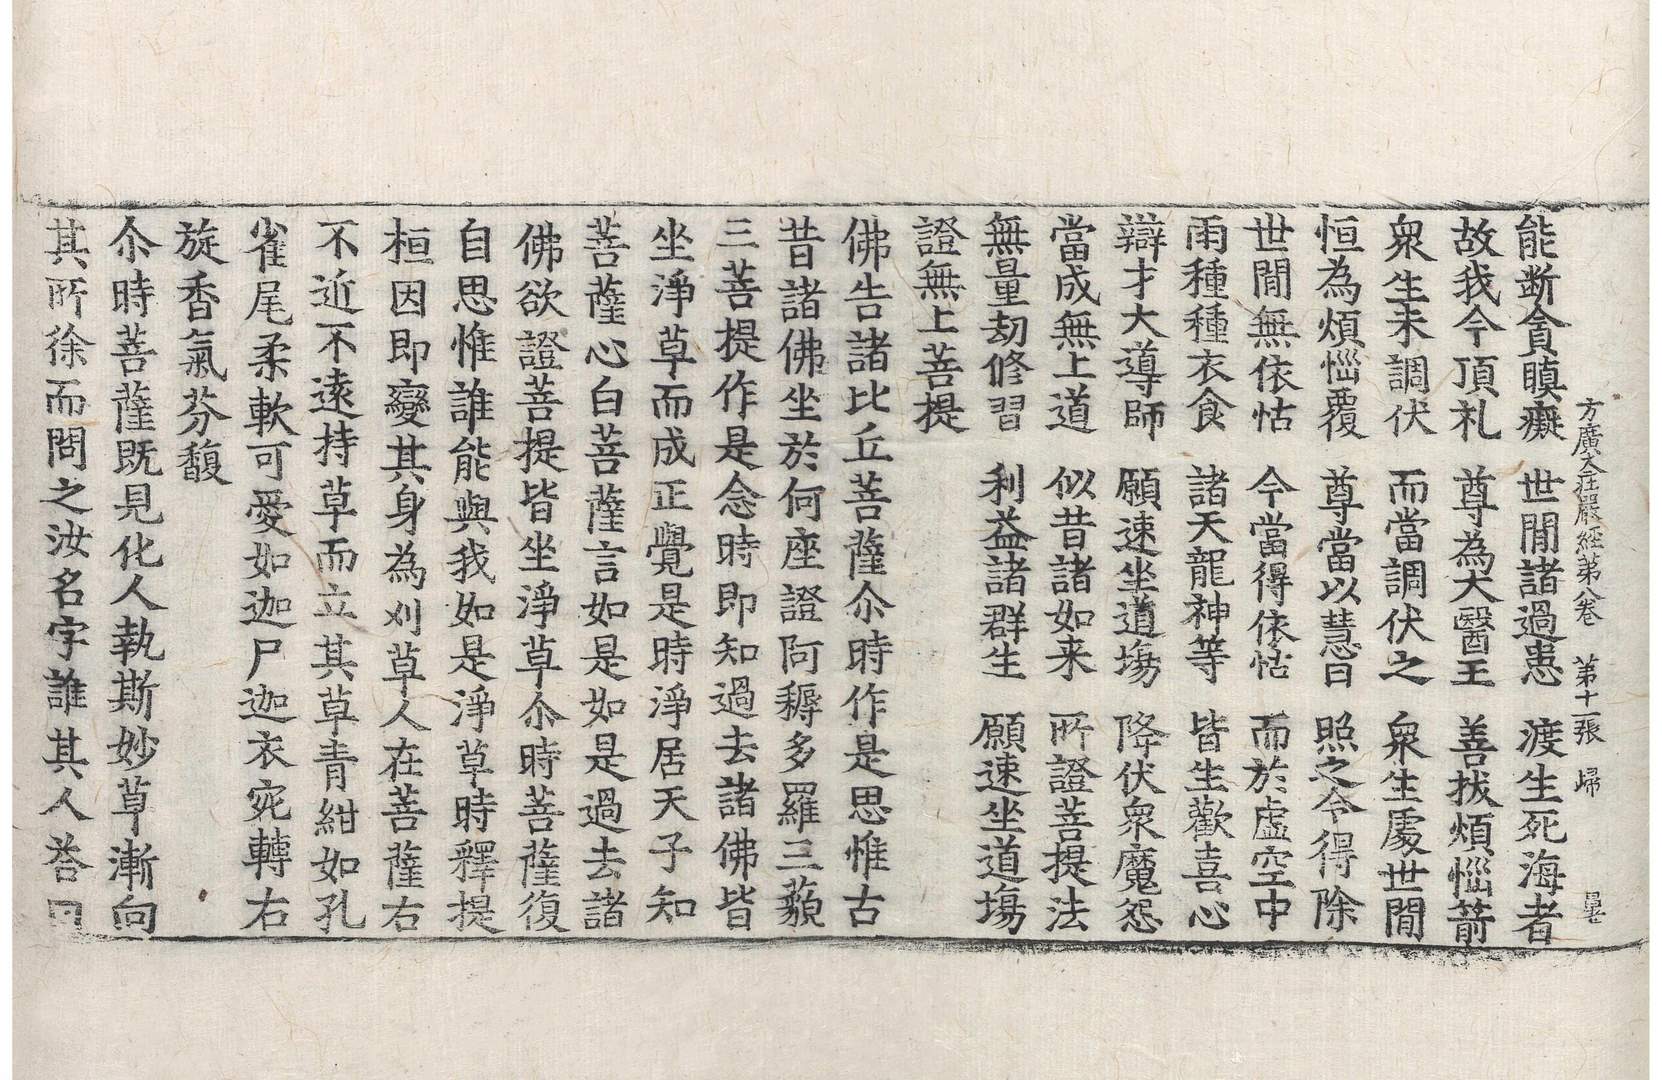 方廣大莊嚴經第八卷　第十一張　歸
能断貪瞋癡　世閒諸過患　渡生死海者
故我今頂礼　尊為大醫王　善拔煩惱箭
衆生未調伏　而當調伏之　衆生處世閒
恒為煩惱覆　尊當以慧日　照之令得除
世閒無依怙　今當得依怙　而於虛空中
雨種種衣食　諸天龍神等　皆生歡喜心
辯才大導師　願速坐道場　降伏衆魔怨
當成無上道　似昔諸如来　所證菩提法
無量劫修習　利益諸群生　願速坐道場
證無上菩提
佛告諸比丘菩薩尒時作是思惟古
昔諸佛坐於何座證阿耨多羅三藐
三菩提作是念時即知過去諸佛皆
坐淨草而成正覺是時淨居天子知
菩薩心白菩薩言如是如是過去諸
佛欲證菩提皆坐淨草尒時菩薩復
自思惟誰能與我如是淨草時釋提
桓因即變其身為刈草人在菩薩右
不近不遠持草而立其草青紺如孔
雀尾柔軟可愛如迦尸迦衣宛轉右
旋香氣芬馥
尒時菩薩既見化人執斯妙草漸向
其所徐而問之汝名字誰其人荅曰